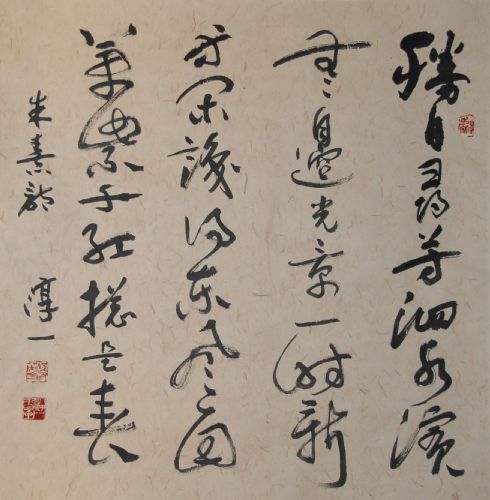 勝日尋芳泗水濱
無邊光景一時新
等閑識得東風面
萬紫千紅總是春
朱熹詩 淳一